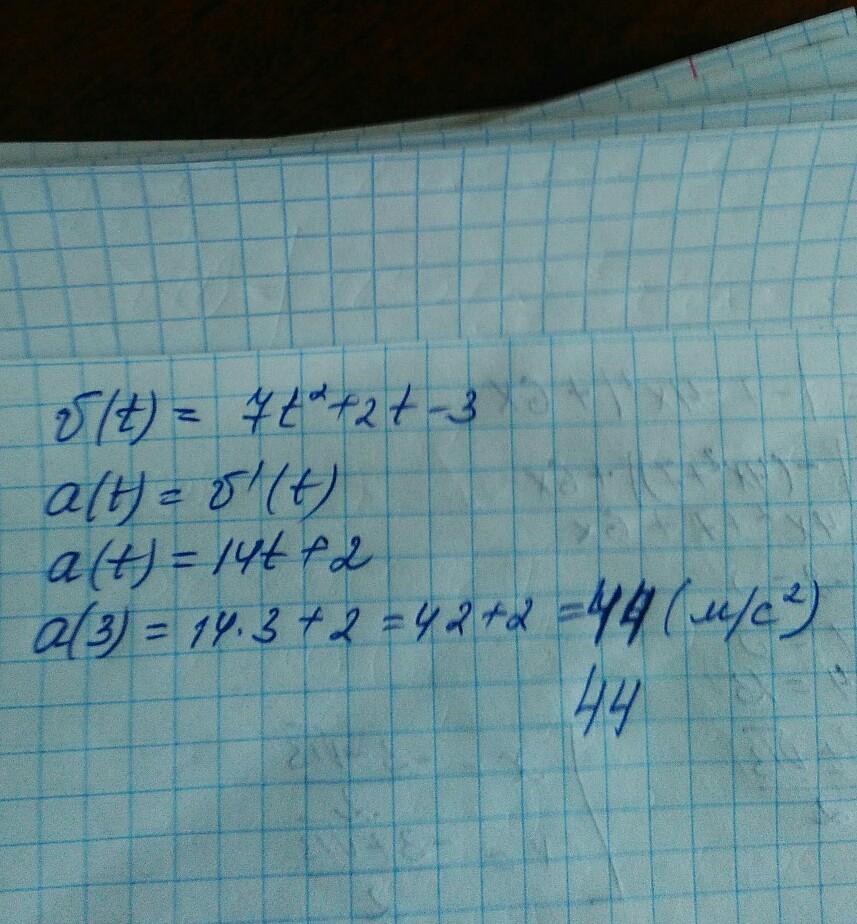 v(t) = 7t²+2t-3
a(t) = v'(t)
a(t) = 14t+2
a(3) = 14·3+2 = 42+2 = 44 (м/с²)
44